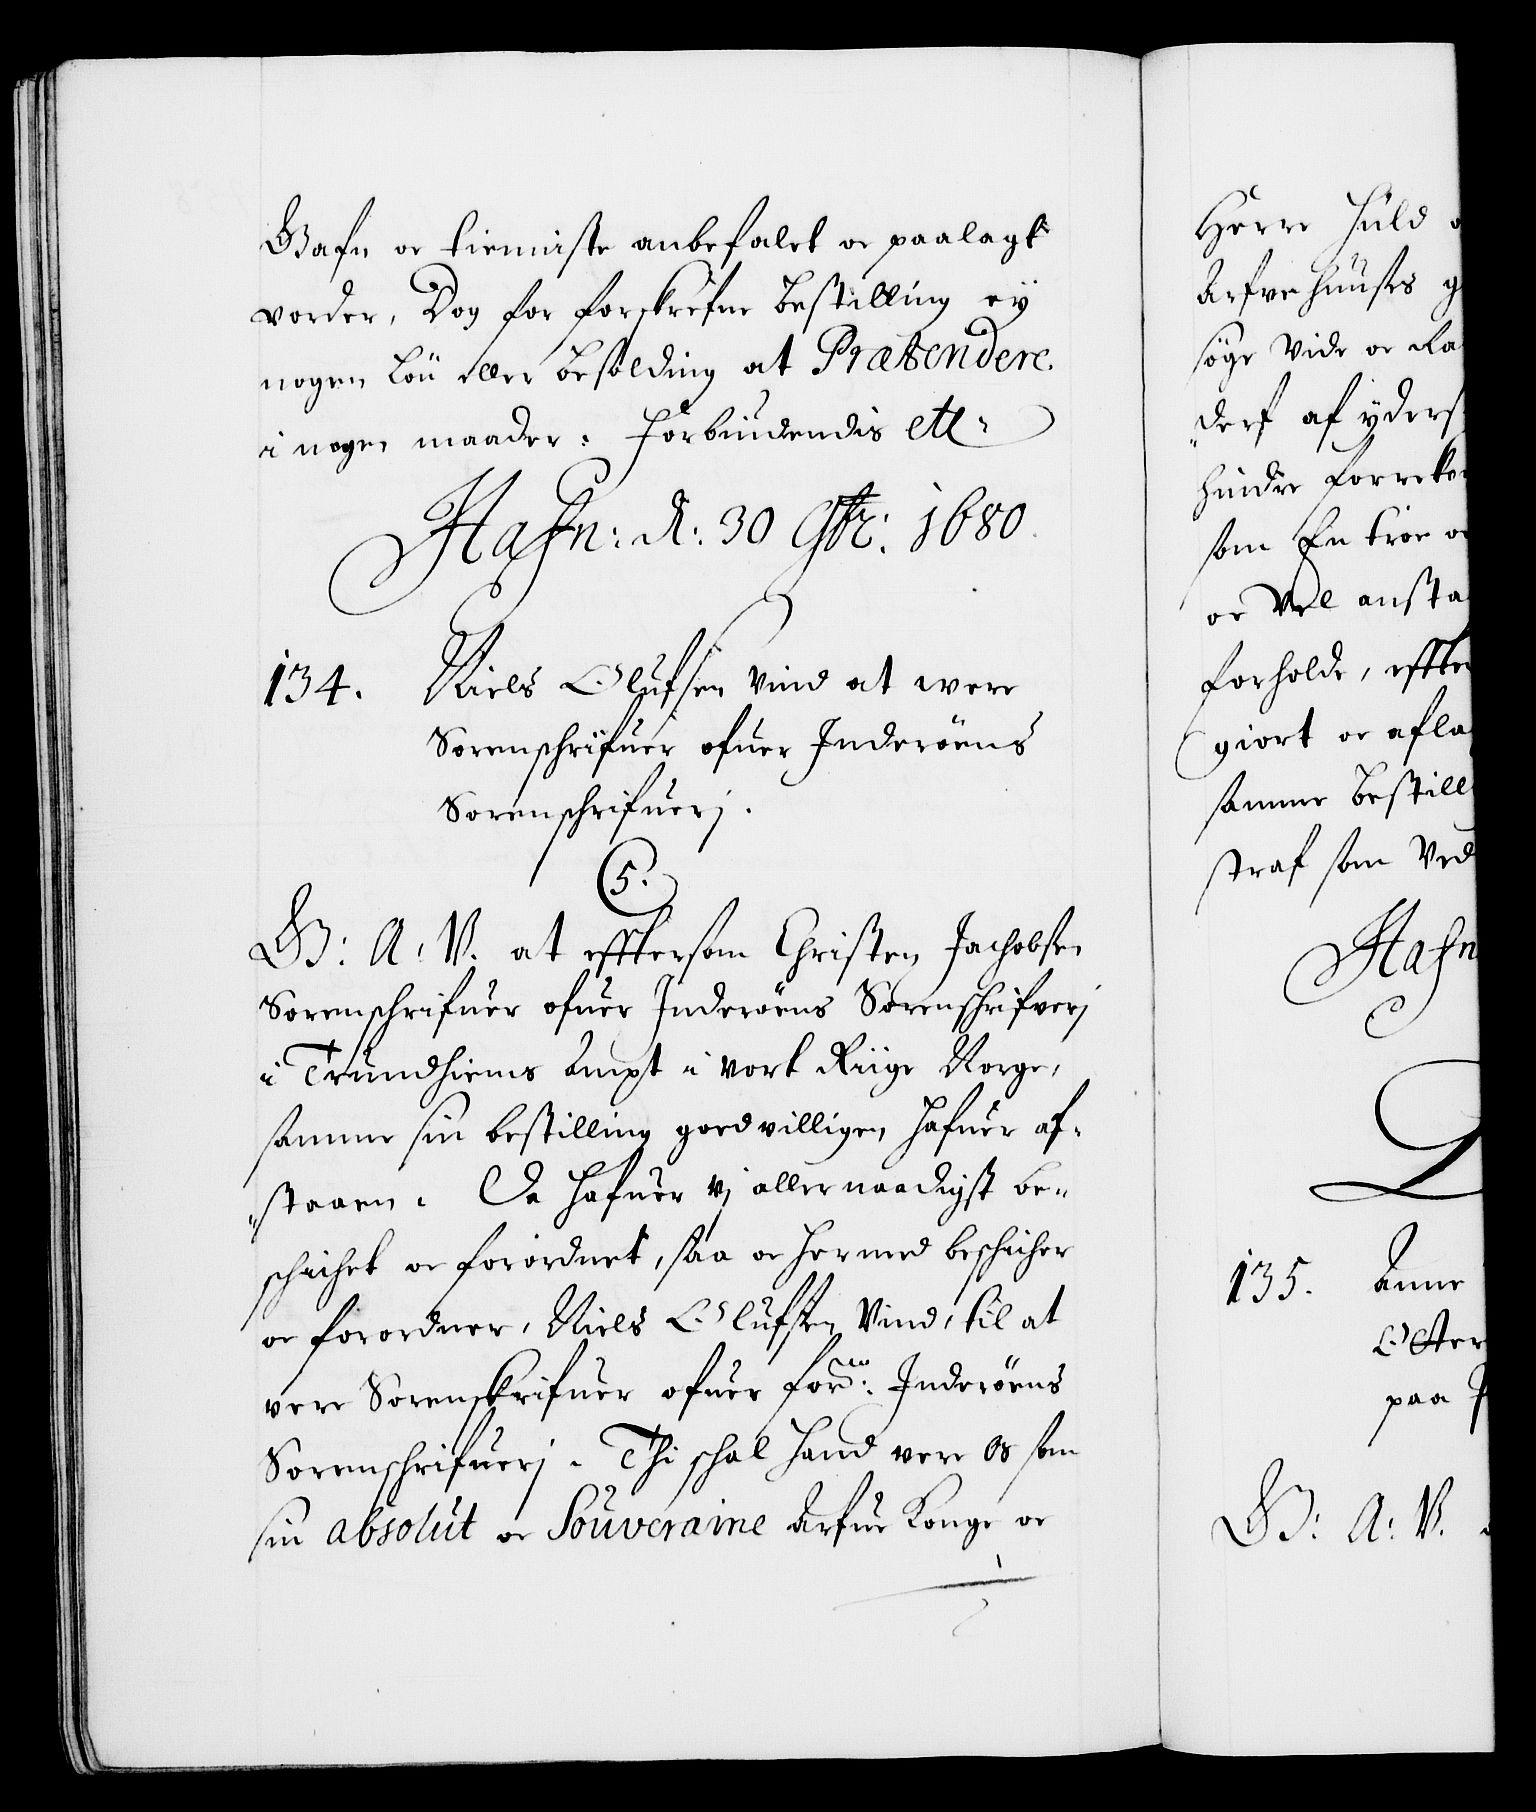 Gafn oc tienniste anbefalet oc paalagt
vorder, Dog for forskrefne bestilling ey
nogen Lön eller besolding at Prætendere.
i nogen maader. Forbiudendis etc.
Hafn: d: 30 9br: 1680.
134. Niels Olufsen Vind at were
Sorenschrifuer ofuer Inderöens
Sorenschrifuerj.
5.
G: A: V. at efftersom Christen Jachobsen
Sorenschrifuer ofuer Inderöens Sorenschrifverj
i Trundhiems Ampt i vort Riige Norge,
samme sin bestilling goedvilligen hafuer af-
staaen. Da hafuer vj allernaadigst be-
schichet oc forordnet, saa oc hermed beschicher
oc forordner, Niels Olufsen Vind, til at
vere Sorenskrifuer ofuer forne: Inderöens
Sorenschrifuerj. Thi schal hand vere Os som
sin absolut oc Souveraine Arfue Konge oc
Herre huld o
Arfvehuuses g
söge vide oc Ra
derf af yders
hindre forreko
som En troe oc
oc Vel ansta
forholde, effter
giort oc afla
samme bestill
straf som Ved
Hafn
135. Anne
Otter
paa
G: A: V.